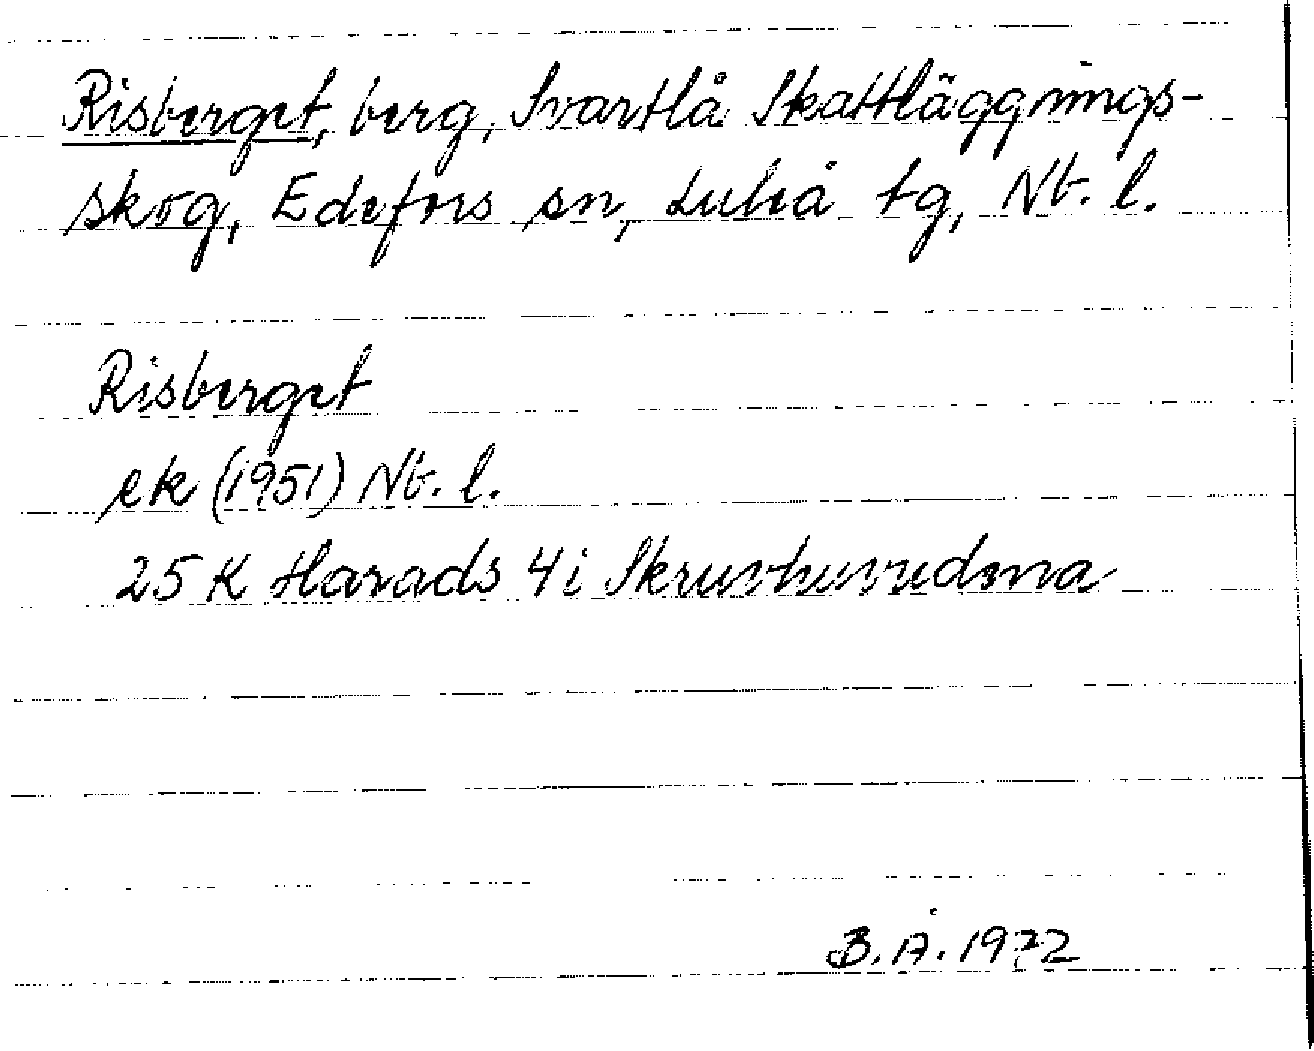 Risberget, berg, Svartlå Skattläggnings-
skog, Edefors sn, Luleå tg, Nb. l.
Risberget
ek (1951) Nb. l.
25 K Harads 4i Skruvhuvudena
B. Å. 1972